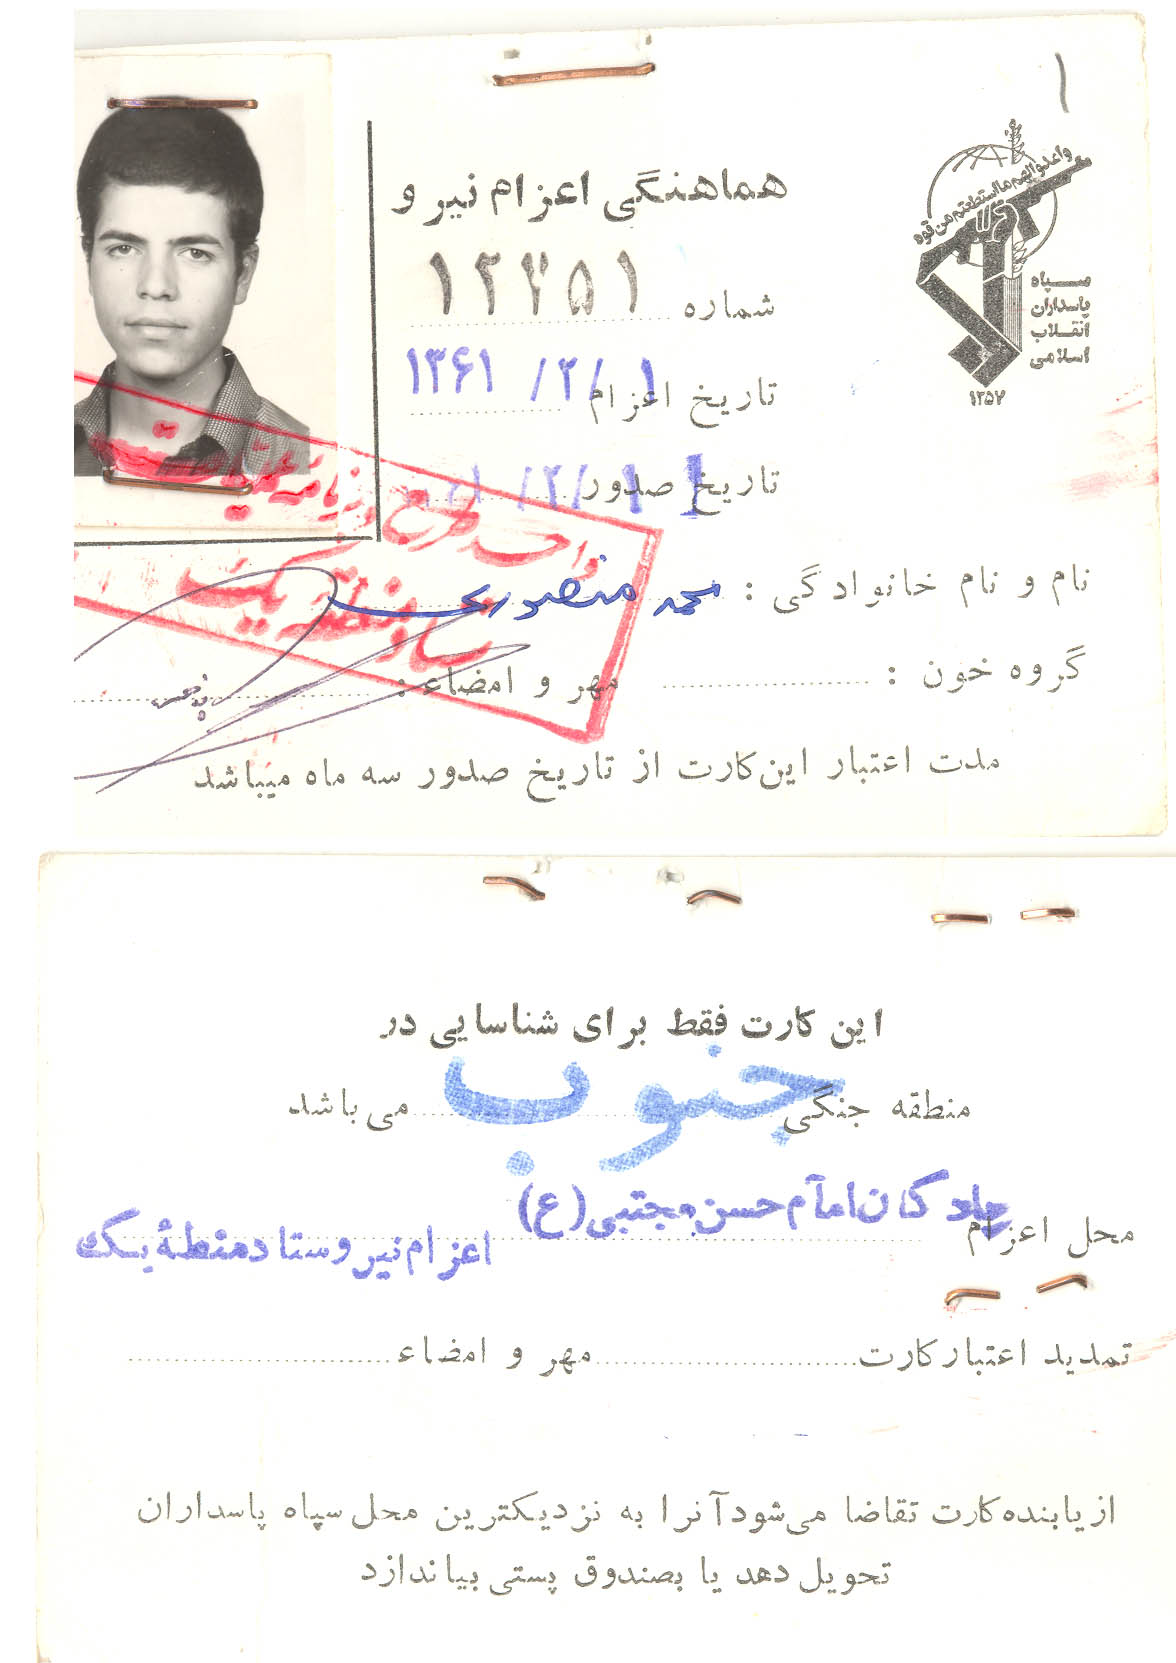 ۱
هماهنگی اعزام نیرو
واعدوالهم مااستطعتم من قوه
سپاه
پاسداران
انقلاب
اسلامی
۱۳۵۷
شماره ۱۲۲۵۱
تاریخ اعزام ۱ /۲/ ۱۳۶۱
تاریخ صدور ۱ /۲/
واحد طرح و
ستاد منطقه یک
نام و نام خانوادگی : محمد منصوری
گروه خون : مهر و امضاء :
مدت اعتبار این کارت از تاریخ صدور سه ماه میباشد
این کارت فقط برای شناسایی در
منطقه جنگی جنوب می باشد
محل اعزام پادگان امام حسن مجتبی (ع)
اعزام نیرو ستاد منطقهٔ یک
تمدید اعتبار کارت مهر و امضاء
از یابنده کارت تقاضا می شود آنرا به نزدیکترین محل سپاه پاسداران
تحویل دهد یا بصندوق پستی بیاندازد